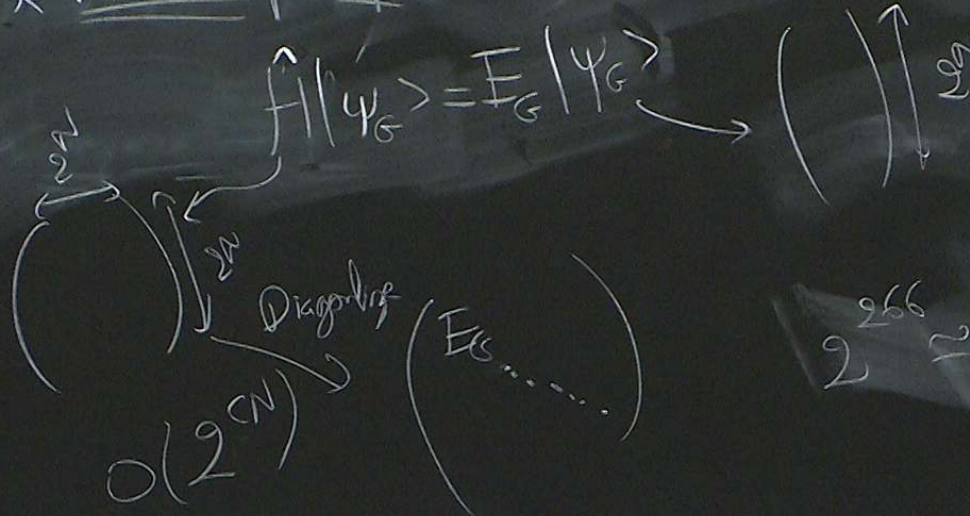 Ĥ|ψ_G> = E_G|ψ_G>
( ) 2^N
2^N
( ) 2^N
Diagonalize
( E_G ..... )
O(2^{CN})
2^{266} ≈